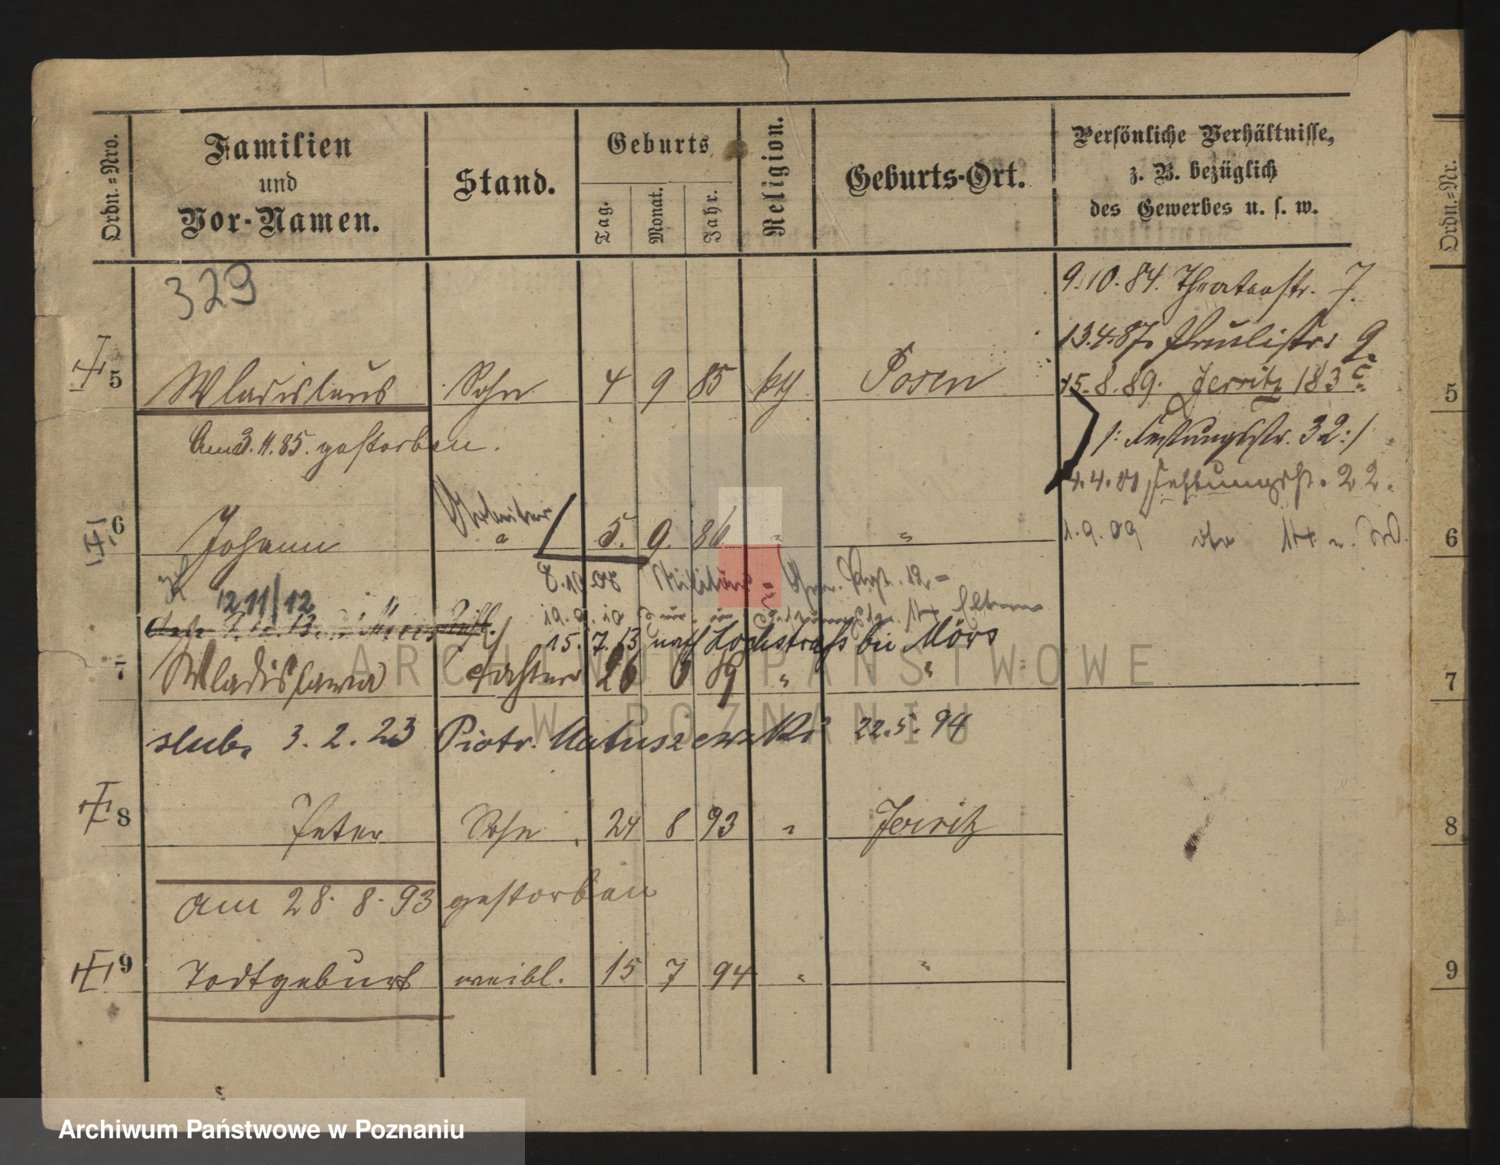 Ordn.=Nro.
Familien
und
Vor-Namen.
Stand.
Geburts
Tag.
Monat.
Jahr.
Religion.
Geburts-Ort.
Persönliche Verhältnisse,
z. B. bezüglich
des Gewerbes u. s. w.
Ordn.=Nr.
329
9.10.84. Theaterstr. 7.
13.4.87. Paulistr. 9.
5 Wladislaus Sohn 4 9 85 kth Posen
15.8.89. Jerzitz 183c
Am 3.11.85. gestorben.
/: Festungsstr. 32 :/
4.4.01 22.
6 Johann Arbeiter 5. 9. 86 " "
1.9.09
8.10.08 Militär
12/11/12
15.7.13 nach bei Mörs
7 Wladislawa Tochter 26 6 89 " "
ślub. 3.2.23 Piotr Matuszewski 22.5.94
8 Peter Sohn 24 8 93 " Jerzitz
am 28.8.93 gestorben
9 Todtgeburt weibl. 15 7 94 " "
5
6
7
8
9
ARCHIWUM PAŃSTWOWE
W POZNANIU
Archiwum Państwowe w Poznaniu